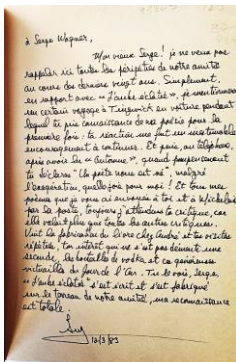 à Serge Wagner,
Mon vieux Serge! je ne veux pas
rappeler ici toutes les péripéties de notre amitié
au cours des derniers vingt ans. Simplement,
en rapport avec « L'aube éclatée », je mentionnerai
un certain voyage à Tingwick en voiture pendant
lequel tu pris connaissance de ma poésie pour la
première fois : ta réaction me fut un inestimable
encouragement à continuer. Et puis, au téléphone,
après avoir lu « Automne », quand pompeusement
tu déclaras "Un poète nous est né", malgré
l'exagération, quelle joie pour moi! Et tous mes
poèmes que je vous ai envoyés à toi et à Micheline
par la poste, toujours j'attendais ta critique, car
elle valait plus que toutes les autres critiques.
Vint la fabrication du livre chez André et tes visites
répétées, ton intérêt qui ne s'est pas démenti une
seconde, la bouteille de vodka et ces généreuses
victuailles du jour de l'an. Tu le vois, Serge,
« L'aube éclatée » s'est écrit et s'est fabriqué
sur le terreau de notre amitié, ma reconnaissance
est totale.
Guy
12/3/83